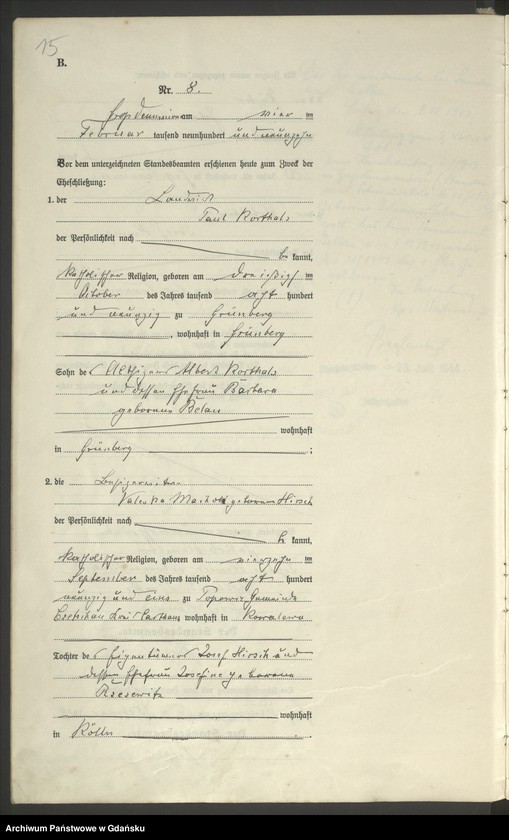 15
B.
Nr. 8.
am vier im
Februar tausend neunhundert und neunzehn
Vor dem unterzeichneten Standesbeamten erschienen heute zum Zweck der
Eheschließung:
1. der Landwirt
Paul Korthals
der Persönlichkeit nach
be kannt,
katholischer Religion, geboren am dreißig im
Oktober des Jahres tausend acht hundert
und neunzig zu Grünberg
, wohnhaft in Grünberg
Sohn des Albert Korthals
und dessen Ehefrau Barbara
geborene Belau
wohnhaft
in Grünberg ;
2. die Besitzerwitwe
Valeska geborene Hirsch
der Persönlichkeit nach
be kannt,
katholischer Religion, geboren am vierzehn im
September des Jahres tausend acht hundert
neunzig und eins zu Gemeinde
Karthaus wohnhaft in
Tochter des Eigentümers Josef Hirsch und
dessen Ehefrau Josefine geborene
wohnhaft
in Kölln
Archiwum Państwowe w Gdańsku